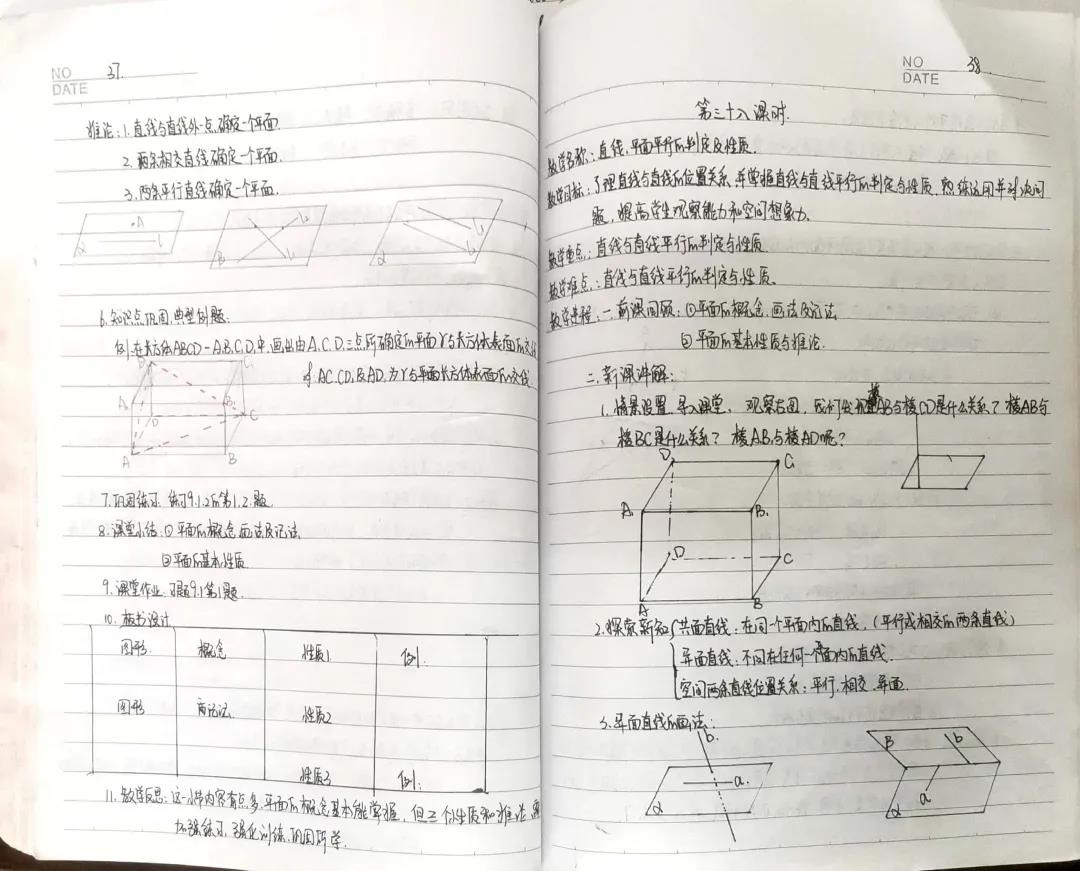 NO 37.
DATE
推论:1.直线与直线外一点,确定一个平面.
2.两条相交直线确定一个平面.
3.两条平行直线确定一个平面.
A α l
β l₂ l₁
α l₁ l₂
6.知识点巩固,典型例题:
例:在长方体ABCD-A₁B₁C₁D₁中,画出由A.C.D₁三点所确定的平面γ与长方体表面的交线
AC.CD₁及AD₁为γ与平面长方体表面的交线.
D₁ C₁
A₁ B₁
D C
A B
7.巩固练习:练习9.1.2的第1.2.题.
8.课堂小结:①平面的概念,画法及记法.
②平面的基本性质.
9.课堂作业:习题9.1第1题.
10.板书设计
图形 概念 性质1 例.
图形 画法 性质2
性质3 例.
11.教学反思:这一小节内容有点多,平面的概念基本能掌握,但三个性质和推论
加强练习,强化训练,巩固所学.
NO 38.
DATE
第三十八课时.
教学名称:直线,平面平行的判定及性质.
教学目标:了理直线与直线的位置关系,并掌握直线与直线平行的判定与性质,熟练运用并解决问
题,提高学生观察能力和空间想象力.
教学重点:直线与直线平行的判定与性质.
教学难点:直线与直线平行的判定与性质.
教学进程:一.前课回顾:①平面的概念,画法及记法
②平面的基本性质与推论.
二.新课讲解:
1.情景设置,导入课堂,观察右图,我们发现棱AB与棱CD是什么关系?棱AB与
棱BC是什么关系?棱A₁B₁与棱AD呢?
D₁ C₁
A₁ B₁
D C
A B
2.探索新知{共面直线:在同一个平面内的直线,(平行或相交的两条直线)
异面直线:不同在任何一个面内的直线.
空间两条直线位置关系:平行,相交,异面.
3.异面直线的画法:
b. a. α
β b a α